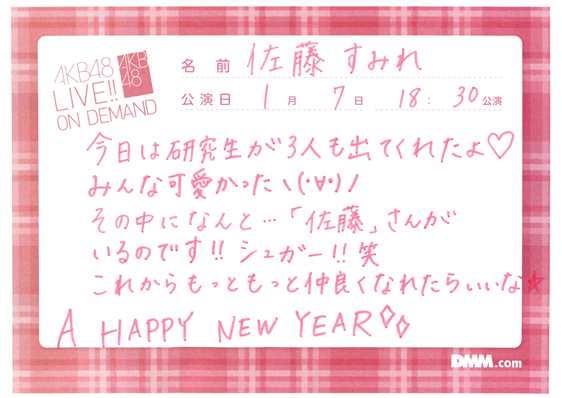 AKB48
LIVE!!
ON DEMAND
AKB
48
名前 佐藤 すみれ
公演日 1月 7日 18:30公演
今日は研究生が3人も出てくれたよ♡
みんな可愛かったヽ(・∀・)ノ
その中になんと…「佐藤」さんが
いるのです!!シュガー!!笑
これからもっともっと仲良くなれたらいいな☆
A HAPPY NEW YEAR◇◇
DMM.com